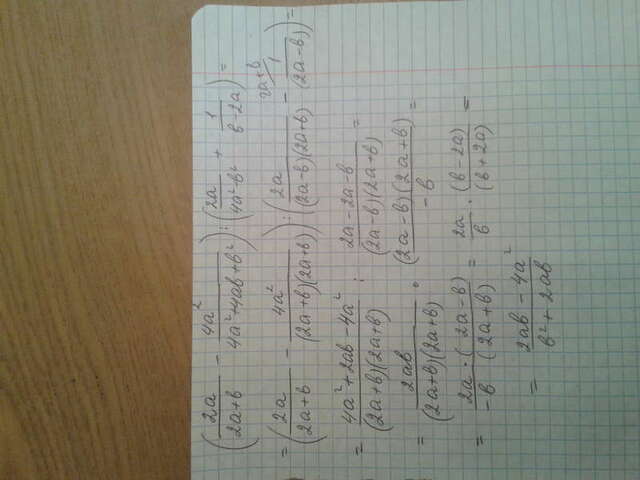 (2a/(2a+b) − 4a²/(4a²+4ab+b²)) : (2a/(4a²−b²) + 1/(b−2a)) =
= (2a/(2a+b) − 4a²/((2a+b)(2a+b))) : (2a/((2a−b)(2a+b)) − 1/(2a−b)) = 2a+b
= (4a²+2ab−4a²)/((2a+b)(2a+b)) : (2a−2a−b)/((2a−b)(2a+b)) =
= 2ab/((2a+b)(2a+b)) · ((2a−b)(2a+b))/(−b) =
= (2a·(2a−b))/(−b(2a+b)) = 2a/b · (b−2a)/(b+2a) =
= (2ab−4a²)/(b²+2ab)